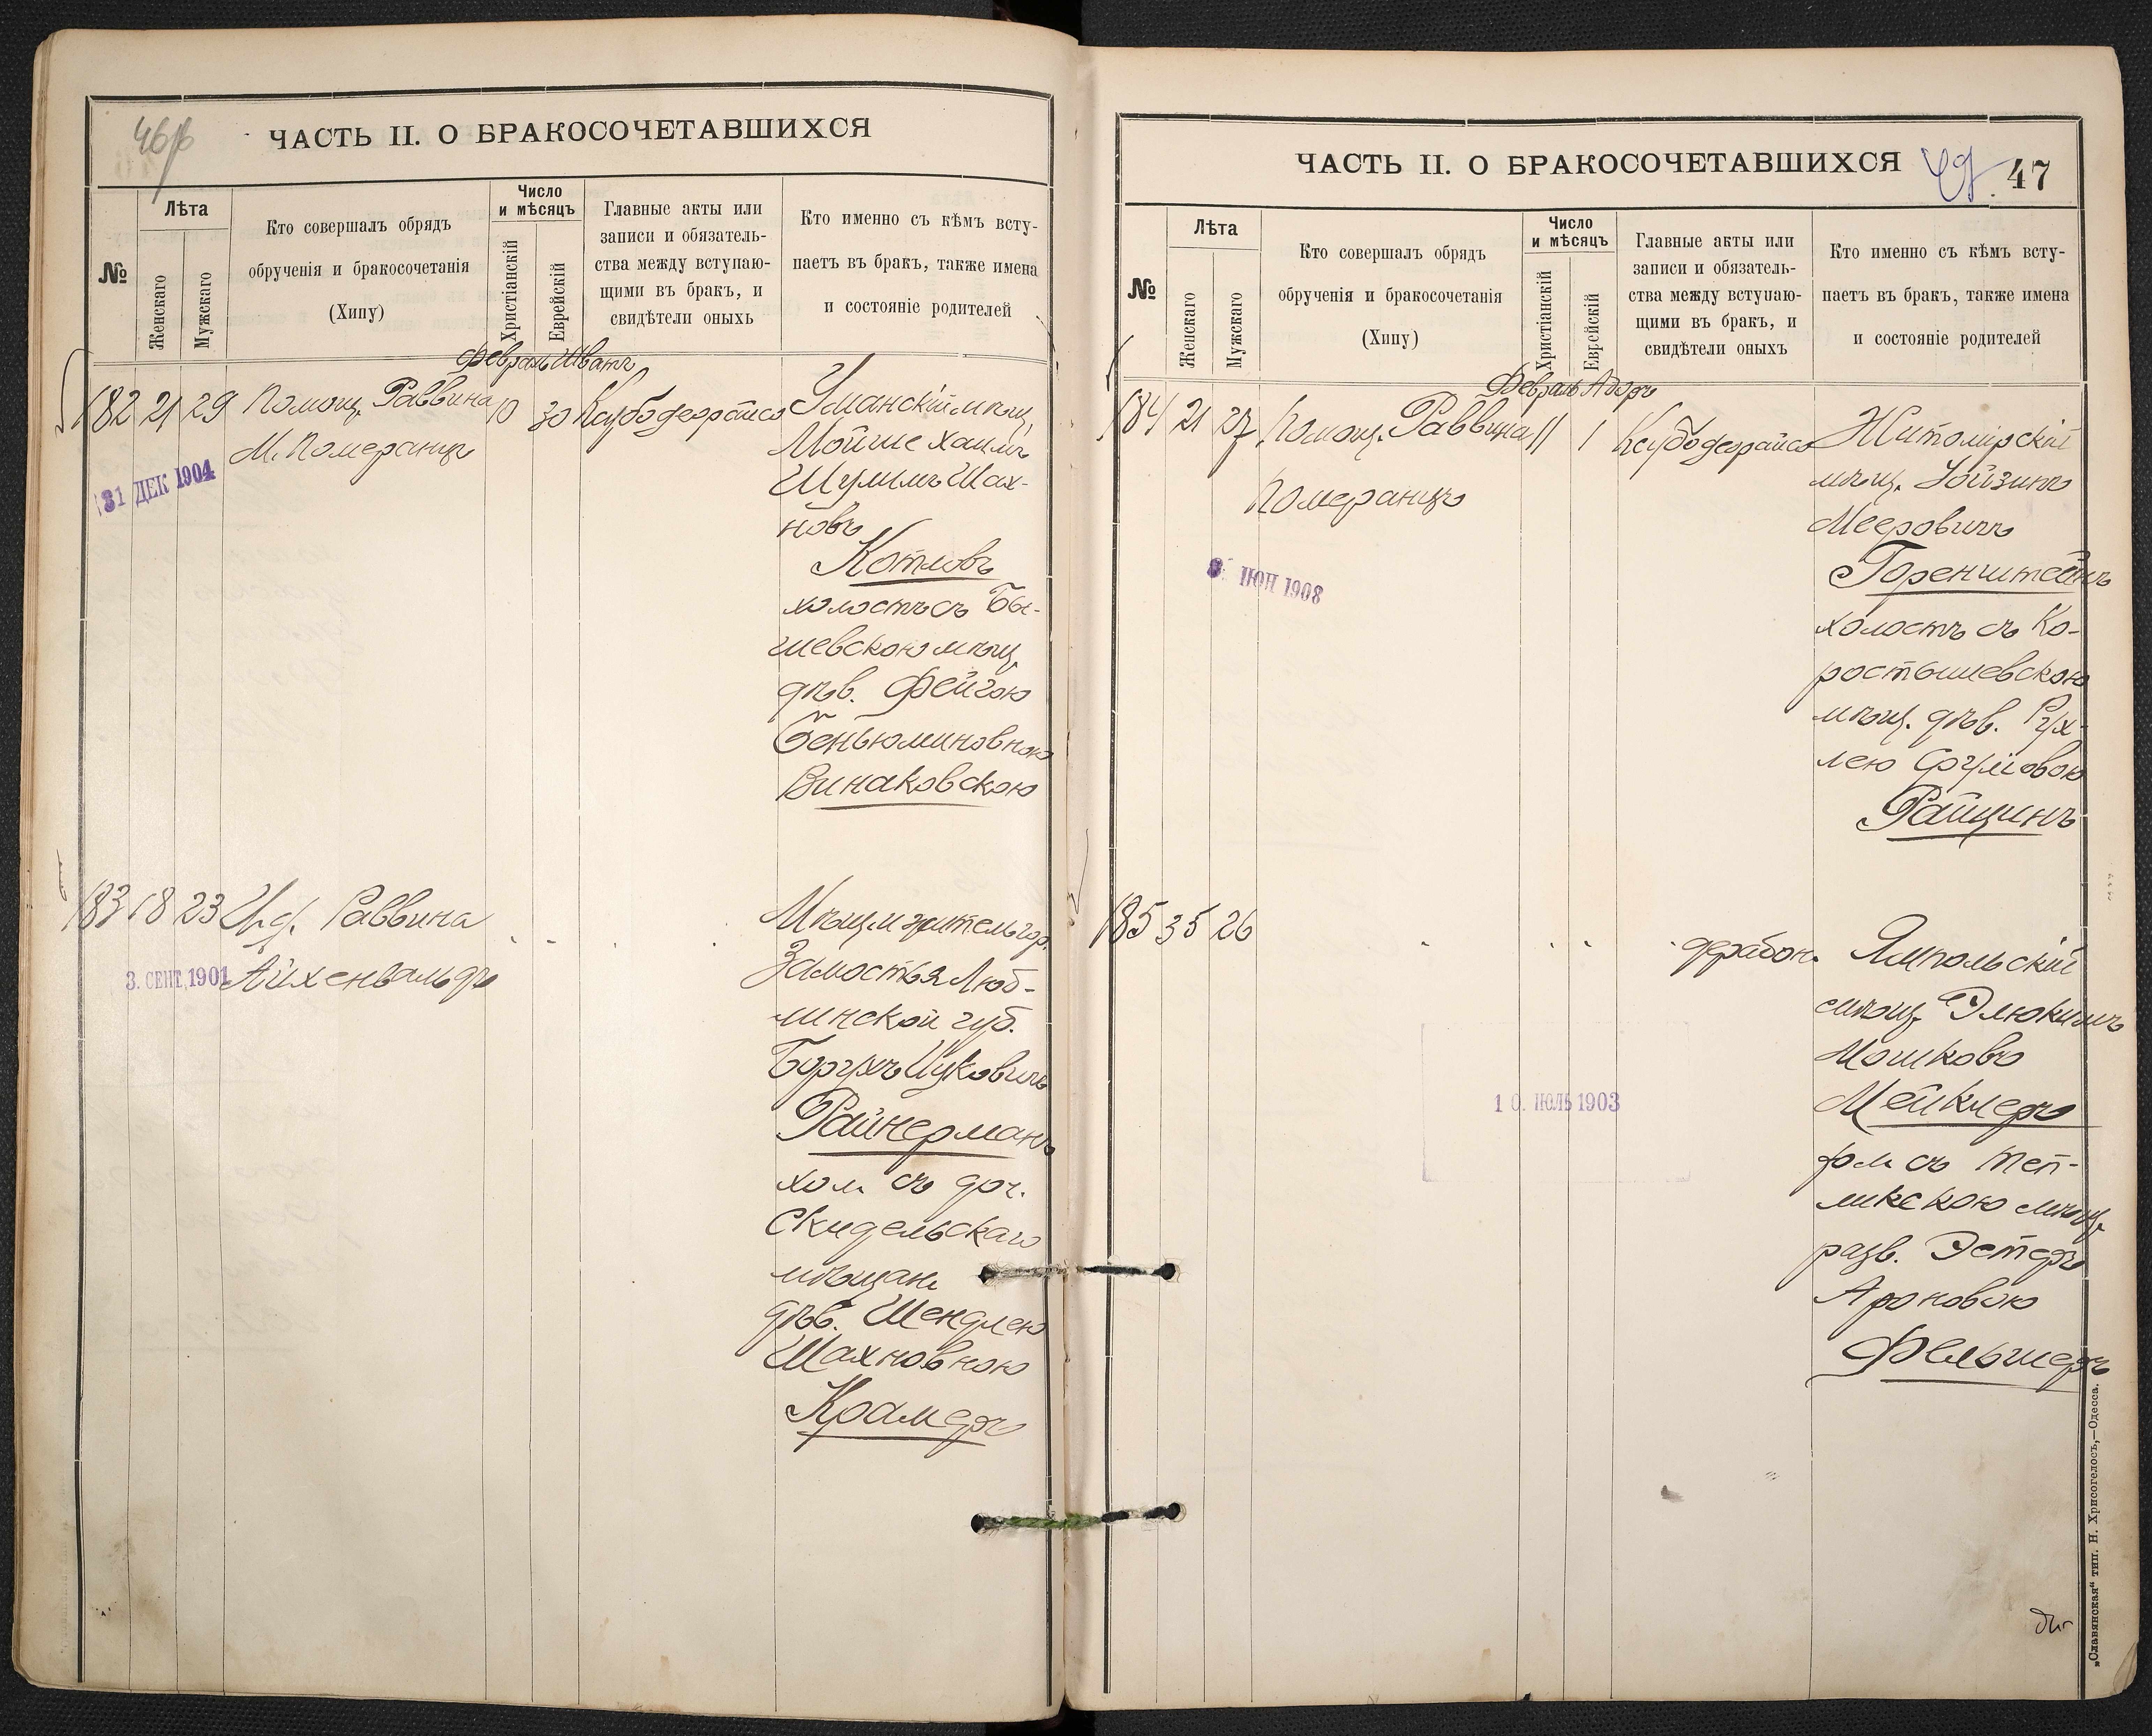 46 об
ЧАСТЬ II. О БРАКОСОЧЕТАВШИХСЯ
№
Лѣта
Женскаго
Мужскаго
Кто совершалъ обрядъ
обрученія и бракосочетанія
(Хипу)
Число
и мѣсяцъ
Христіанскій
Еврейскій
Главные акты или
записи и обязатель-
ства между вступаю-
щими въ бракъ, и
свидѣтели оныхъ
Кто именно съ кѣмъ всту-
паетъ въ бракъ, также имена
и состояніе родителей
Февраль Шватъ
182 21 29 Помощ. Раввина 10 30 Уманскій мѣщ.
М. Померанцъ
31 ДЕК 1904
Мойше Хаимъ
Шулимъ Шах-
новъ
Котловъ
холостъ съ Бы-
шевскою мѣщ.
дѣв. Фейгою
Беньюминовною
Винаковскою
183 18 23 И. д. Раввина
Айхенвальдъ
3. СЕНТ. 1901
Мѣщ. житель гор.
Замостья Люб-
линской губ.
Борухъ Ицковичъ
Райнерманъ
хол. съ доч.
Скидельскаго
мѣщан.
дѣв. Шендлею
Шахновною
Крамеръ
ЧАСТЬ II. О БРАКОСОЧЕТАВШИХСЯ
47
№
Лѣта
Женскаго
Мужскаго
Кто совершалъ обрядъ
обрученія и бракосочетанія
(Хипу)
Число
и мѣсяцъ
Христіанскій
Еврейскій
Главные акты или
записи и обязатель-
ства между вступаю-
щими въ бракъ, и
свидѣтели оныхъ
Кто именно съ кѣмъ всту-
паетъ въ бракъ, также имена
и состояніе родителей
Февраль Адоръ
184 21 27 Помощ. Раввина 11 1 Житомірскій
Померанцъ
ІЮН 1908
мѣщ. Юйзипъ
Мееровичъ
Горенштейнъ
холостъ съ Ко-
ростышевскою
мѣщ. дѣв. Рух-
лею Сруловою
Райцинъ
185 35 26 Ямпольскій
10. ІЮЛЬ 1903
мѣщ. Элюкимъ
Мошковъ
Мейклеръ
съ Теп-
ликскою мѣщ.
разв. Эстеръ
Ароновою
Фельшеръ
„Славянская“ тип. Н. Хрисогелосъ,—Одесса.